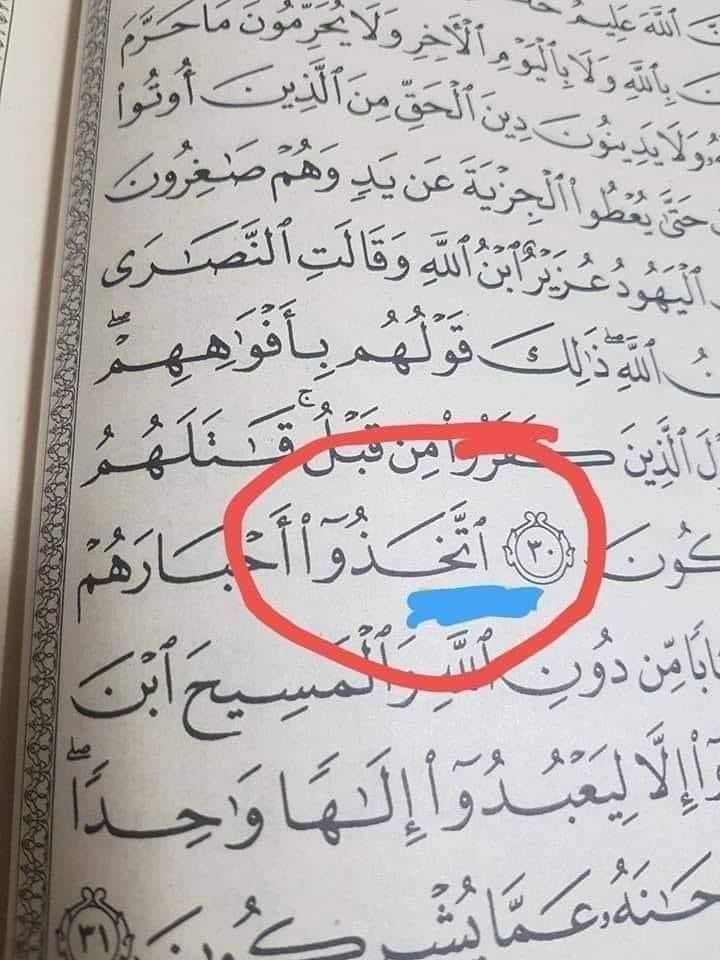 نَّ ٱللَّهَ عَلِيمٌ
نَ بِٱللَّهِ وَلَا بِٱلْيَوْمِ ٱلْآخِرِ وَلَا يُحَرِّمُونَ مَا حَرَّمَ
هُۥ وَلَا يَدِينُونَ دِينَ ٱلْحَقِّ مِنَ ٱلَّذِينَ أُوتُوا۟
حَتَّىٰ يُعْطُوا۟ ٱلْجِزْيَةَ عَن يَدٍ وَهُمْ صَٰغِرُونَ
ٱلْيَهُودُ عُزَيْرٌ ٱبْنُ ٱللَّهِ وَقَالَتِ ٱلنَّصَٰرَى
نُ ٱللَّهِ ۖ ذَٰلِكَ قَوْلُهُم بِأَفْوَٰهِهِمْ ۖ
لَ ٱلَّذِينَ كَفَرُوا۟ مِن قَبْلُ ۚ قَٰتَلَهُمُ
كُونَ ٣٠ ٱتَّخَذُوٓا۟ أَحْبَارَهُمْ
ابًا مِّن دُونِ ٱللَّهِ وَٱلْمَسِيحَ ٱبْنَ
وٓا۟ إِلَّا لِيَعْبُدُوٓا۟ إِلَٰهًا وَٰحِدًا ۖ
حَٰنَهُۥ عَمَّا يُشْرِكُونَ ٣١